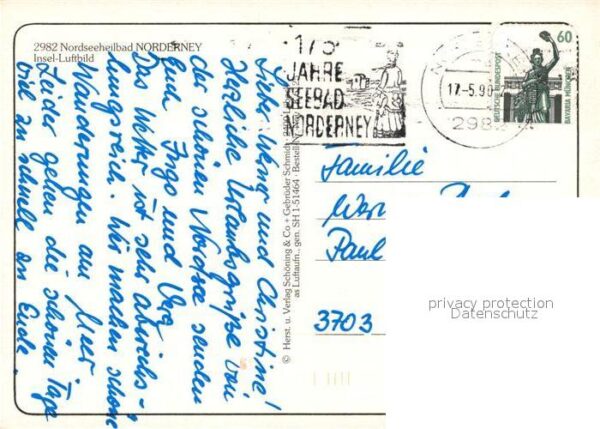 2982 Nordseeheilbad NORDERNEY
Insel-Luftbild
175
JAHRE
SEEBAD
NORDERNEY
17.-5.90
298
60
DEUTSCHE BUNDESPOST
BAVARIA MÜNCHEN
Lieber Werner und Christine!
Herzliche Urlaubsgrüße von
der schönen Nordsee senden
Euch Ingo und Vera
Das Wetter ist sehr abwechs-
lungsreich. Wir machen schöne
Wanderungen am Meer
Leider gehen die schönen Tage
viel zu schnell an Ende.
© Herst. u. Verlag Schöning & Co + Gebrüder Schmidt
as Luftaufn., gen. SH 1-51464 · Bestell
Familie
Wer
Paul
3703
privacy protection
Datenschutz